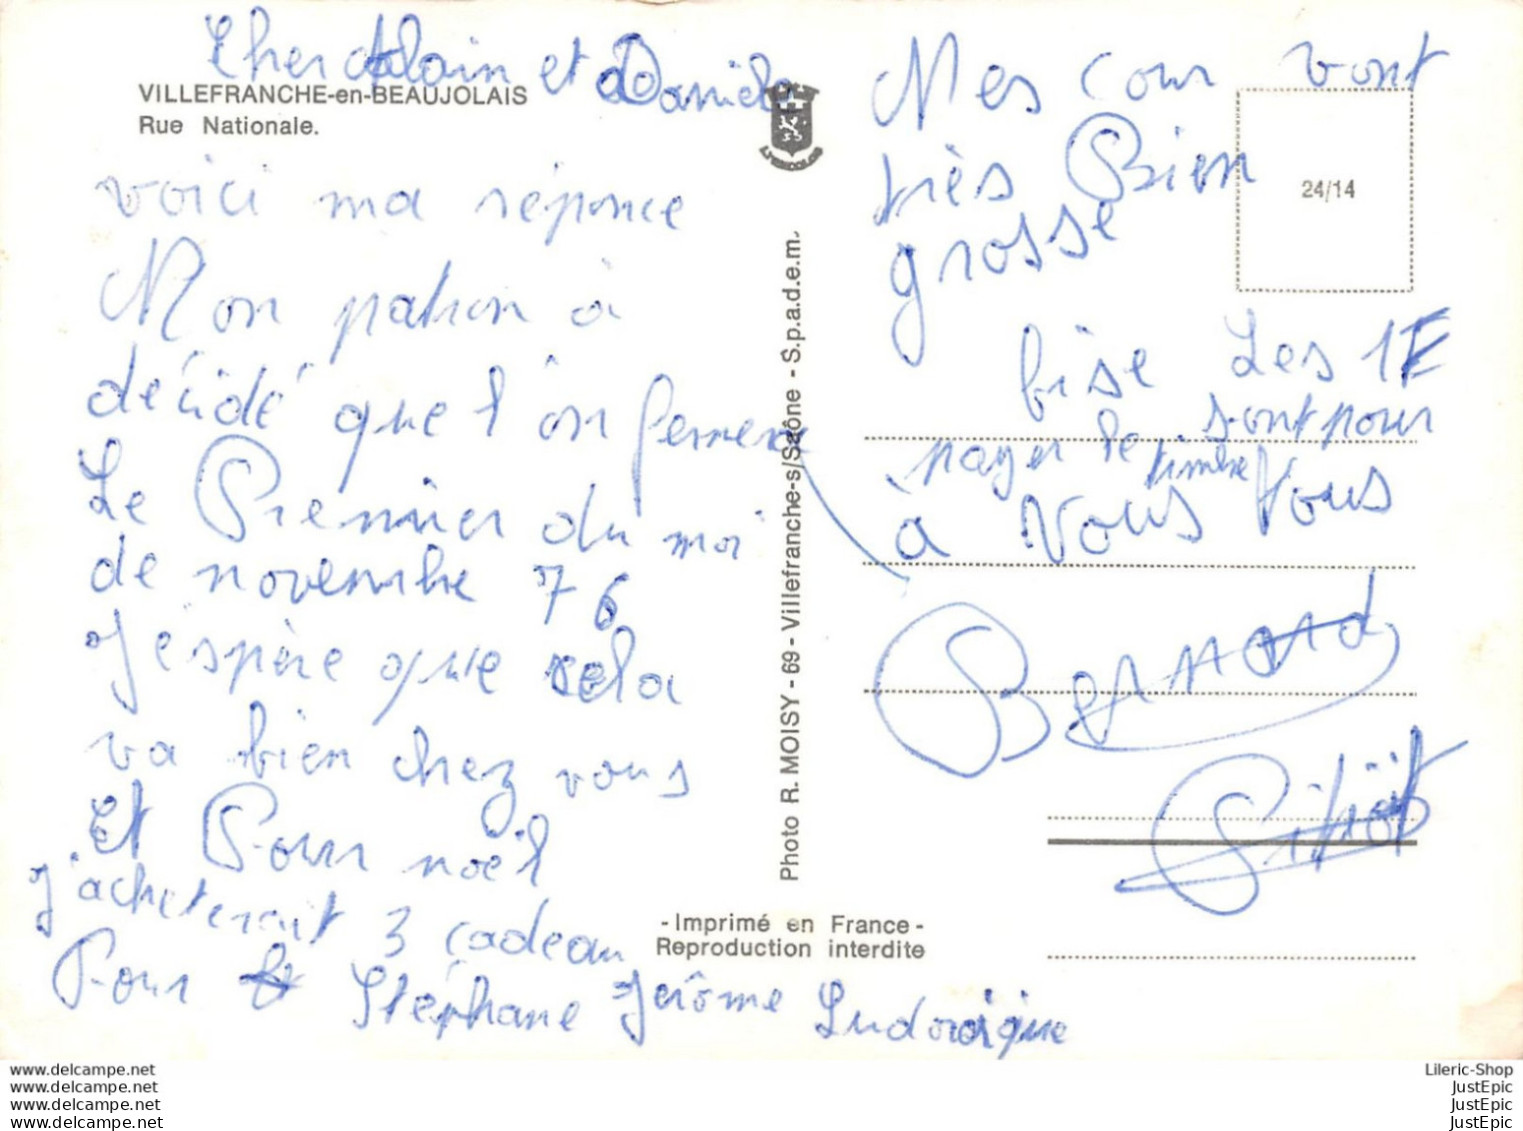 Cher Alain et Danièle
VILLEFRANCHE-en-BEAUJOLAIS
Rue Nationale.
voici ma réponce
Mon patron à
décidé que l'on fermera
Le Premier du moi
de novembre 76
J'espère que cela
va bien chez vous
Et Pour noël
J'achèterait 3 cadeau
Pour Stéphane Jérôme Ludovique
Mes cour vont
très Bien
grosse
24/14
bise Les 1F
sont pour
payer le timbre
à Vous Tous
Bernard
Photo R. MOISY - 69 - Villefranche-s/Saône - S.p.a.d.e.m.
- Imprimé en France -
Reproduction interdite
www.delcampe.net
www.delcampe.net
www.delcampe.net
www.delcampe.net
Lileric-Shop
JustEpic
JustEpic
JustEpic